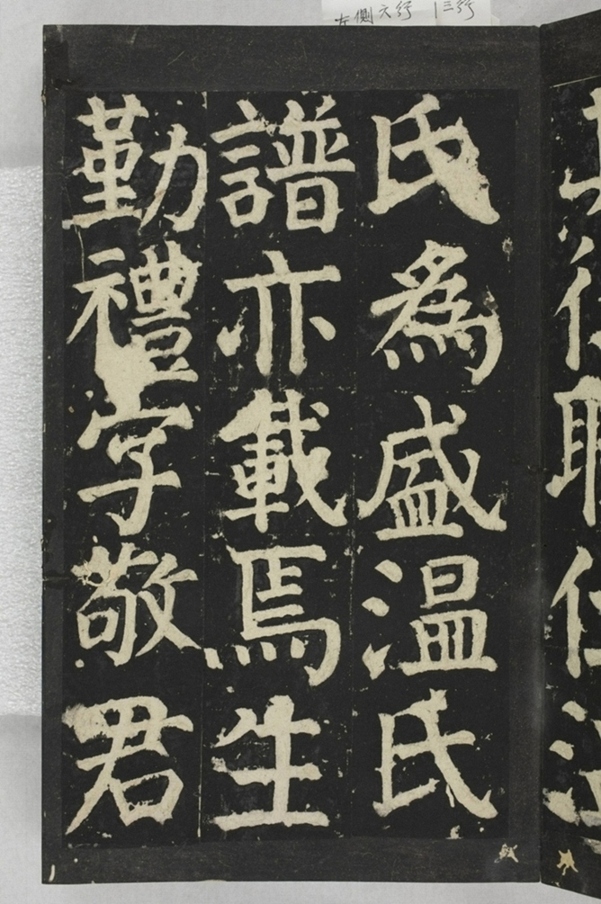 左側六行 | 三行
仕
氏為盛温氏
譜亦載焉生
勤禮字敬君